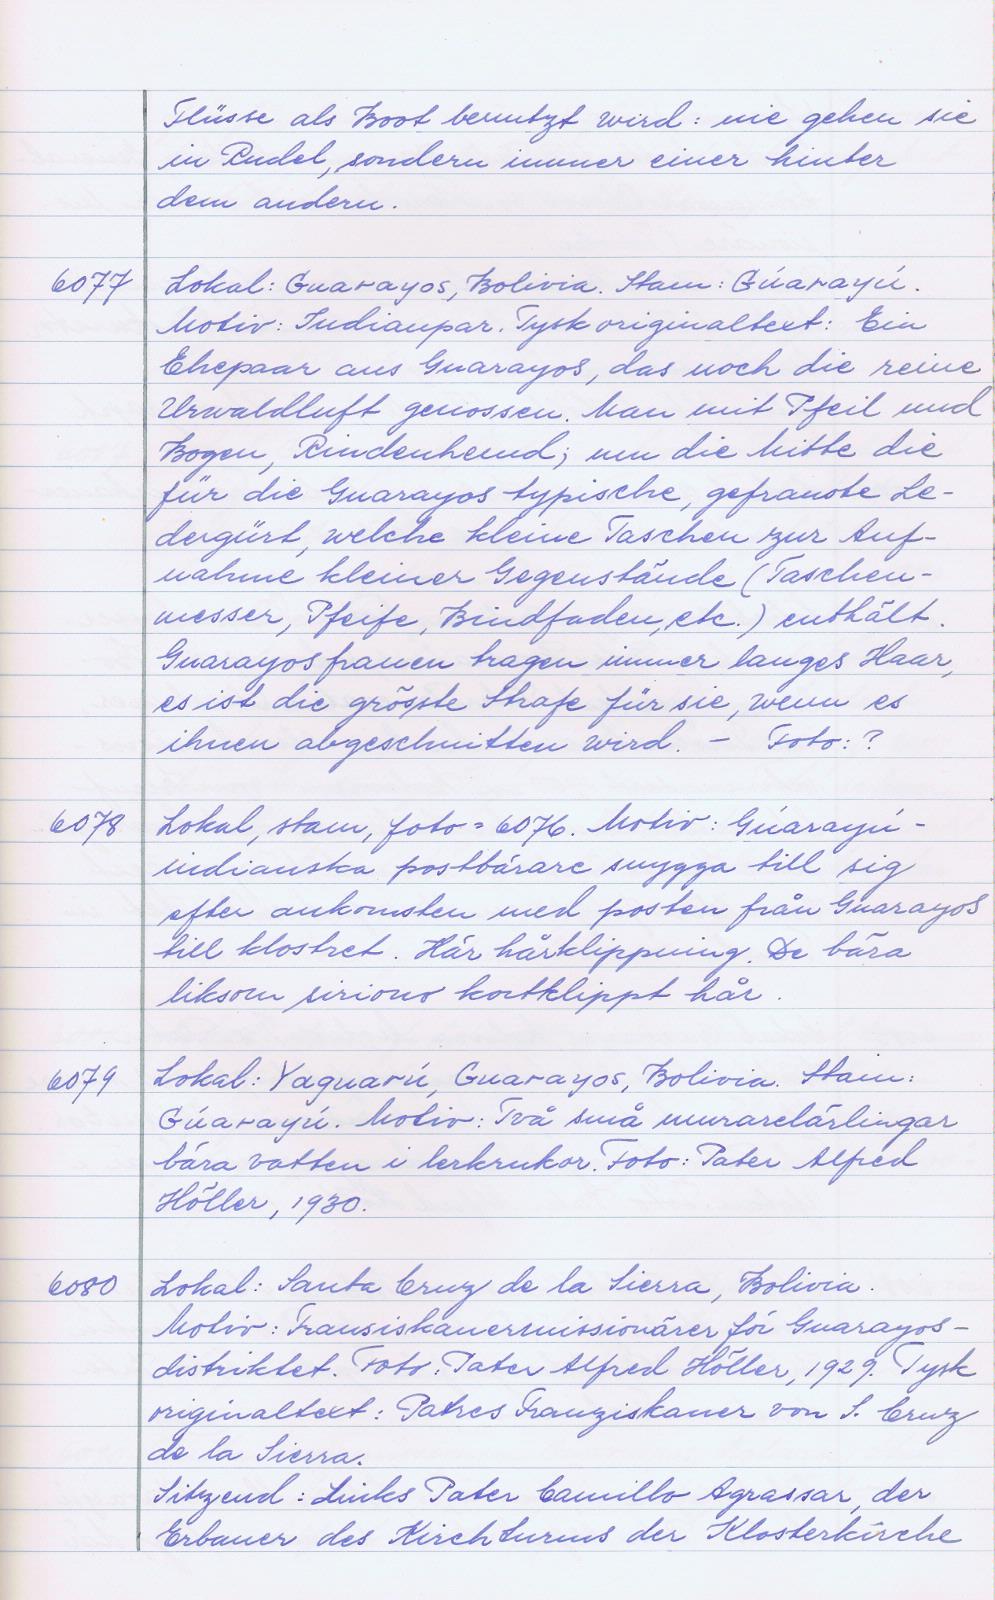 Flüsse als Boot benutzt wird: nie gehen sie
in Rudel, sondern immer einer hinter
dem andern.
6077 Lokal: Guarayos, Bolivia. Stam: Gúarayú.
Motiv: Indianpar. Tysk originaltext: Ein
Ehepaar aus Guarayos, das noch die reine
Urwaldluft genossen. Man mit Pfeil und
Bogen, Rindenhemd; um die Mitte die
für die Guarayos typische, gefranste Le-
dergürt, welche kleine Taschen zur Auf-
nahme kleiner Gegenstände (Taschen-
messer, Pfeife, Bindfaden, etc.) enthält.
Guarayosfrauen tragen immer langes Haar,
es ist die grösste Strafe für sie, wenn es
ihnen abgeschnitten wird. - Foto: ?
6078 Lokal, stam, foto = 6076. Motiv: Gúarayú-
indianska postbärare snygga till sig
efter ankomsten med posten från Guarayos
till klostret. Här hårklippning. De bära
liksom siriono kortklippt hår.
6079 Lokal: Yaguarú, Guarayos, Bolivia. Stam:
Gúarayú. Motiv: Två små murarelärlingar
bära vatten i lerkrukor. Foto: Pater Alfred
Höller, 1930.
6080 Lokal: Santa Cruz de la Sierra, Bolivia.
Motiv: Fransiskanermissionärer för Guarayos-
distriktet. Foto: Pater Alfred Höller, 1929. Tysk
originaltext: Patres Franziskaner von S. Cruz
de la Sierra.
Sitzend: Links Pater Camillo Agrassar, der
Erbauer des Kirchturms der Klosterkirche